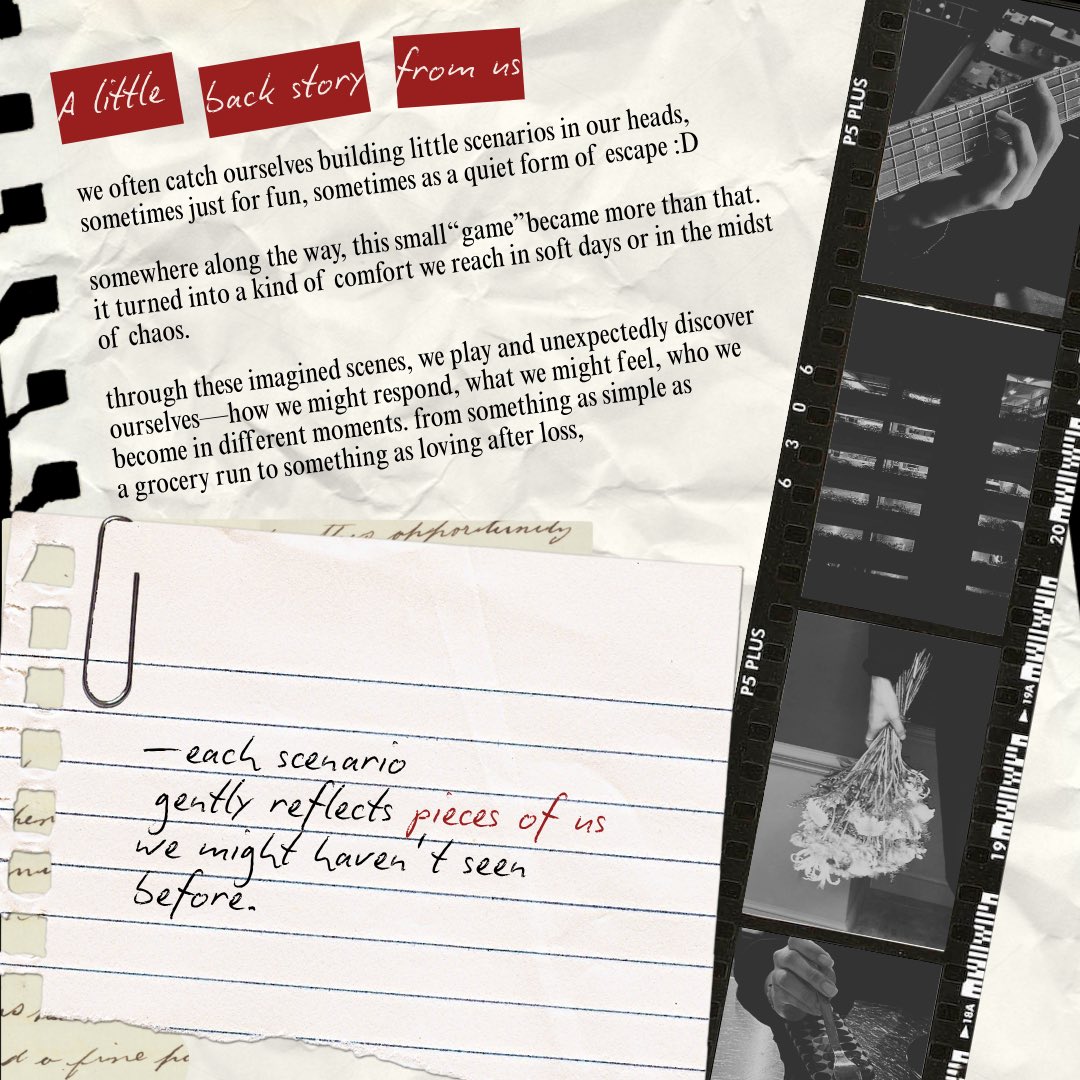 A little back story from us
we often catch ourselves building little scenarios in our heads,
sometimes just for fun, sometimes as a quiet form of escape :D
somewhere along the way, this small “game” became more than that.
it turned into a kind of comfort we reach in soft days or in the midst
of chaos.
through these imagined scenes, we play and unexpectedly discover
ourselves—how we might respond, what we might feel, who we
become in different moments. from something as simple as
a grocery run to something as loving after loss,
—each scenario
gently reflects pieces of us
we might haven't seen
before.
P5 PLUS
6 3 0 6
P5 PLUS
20
19A
19
18A